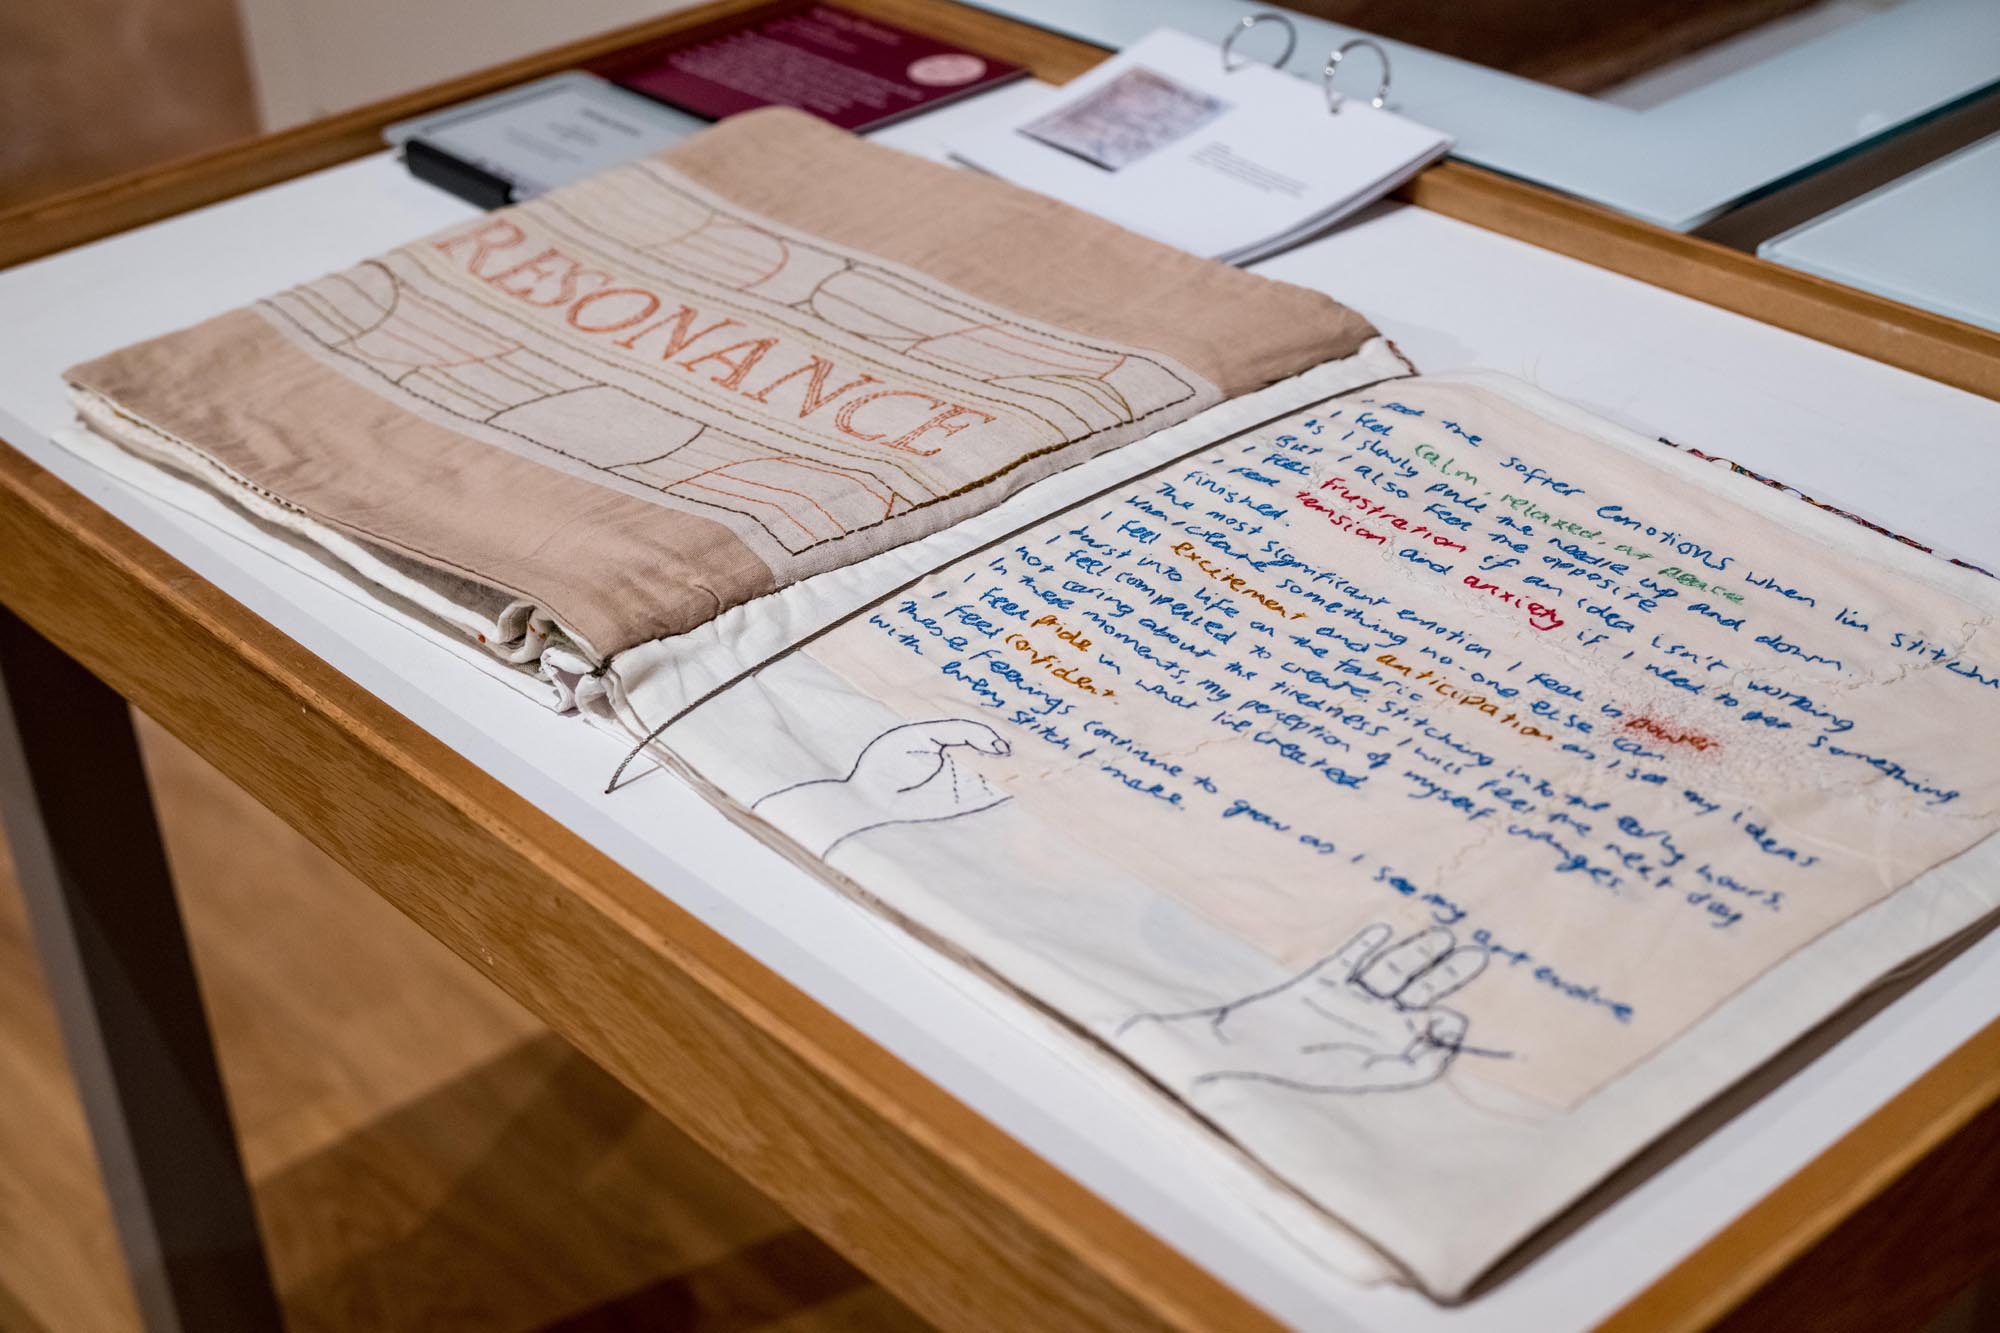 RESONANCE
feel the softer emotions when I'm
I feel calm, relaxed, at peace
As I slowly pull the needle up and down.
But I also feel the opposite
I feel frustration if an idea isn't working
I feel tension and anxiety if I need to get something
finished.
The most significant emotion I feel is power
When I create something no-one else can
I feel excitement and anticipation as I see my ideas
burst into life on the fabric.
I feel compelled to create. Stitching into the early hours.
not caring about the tiredness I will feel the next day
In these moments, my perception of myself changes.
I feel pride in what I've created
I feel confident.
These feelings continue to grow as I see my art evolve
with every stitch I make.